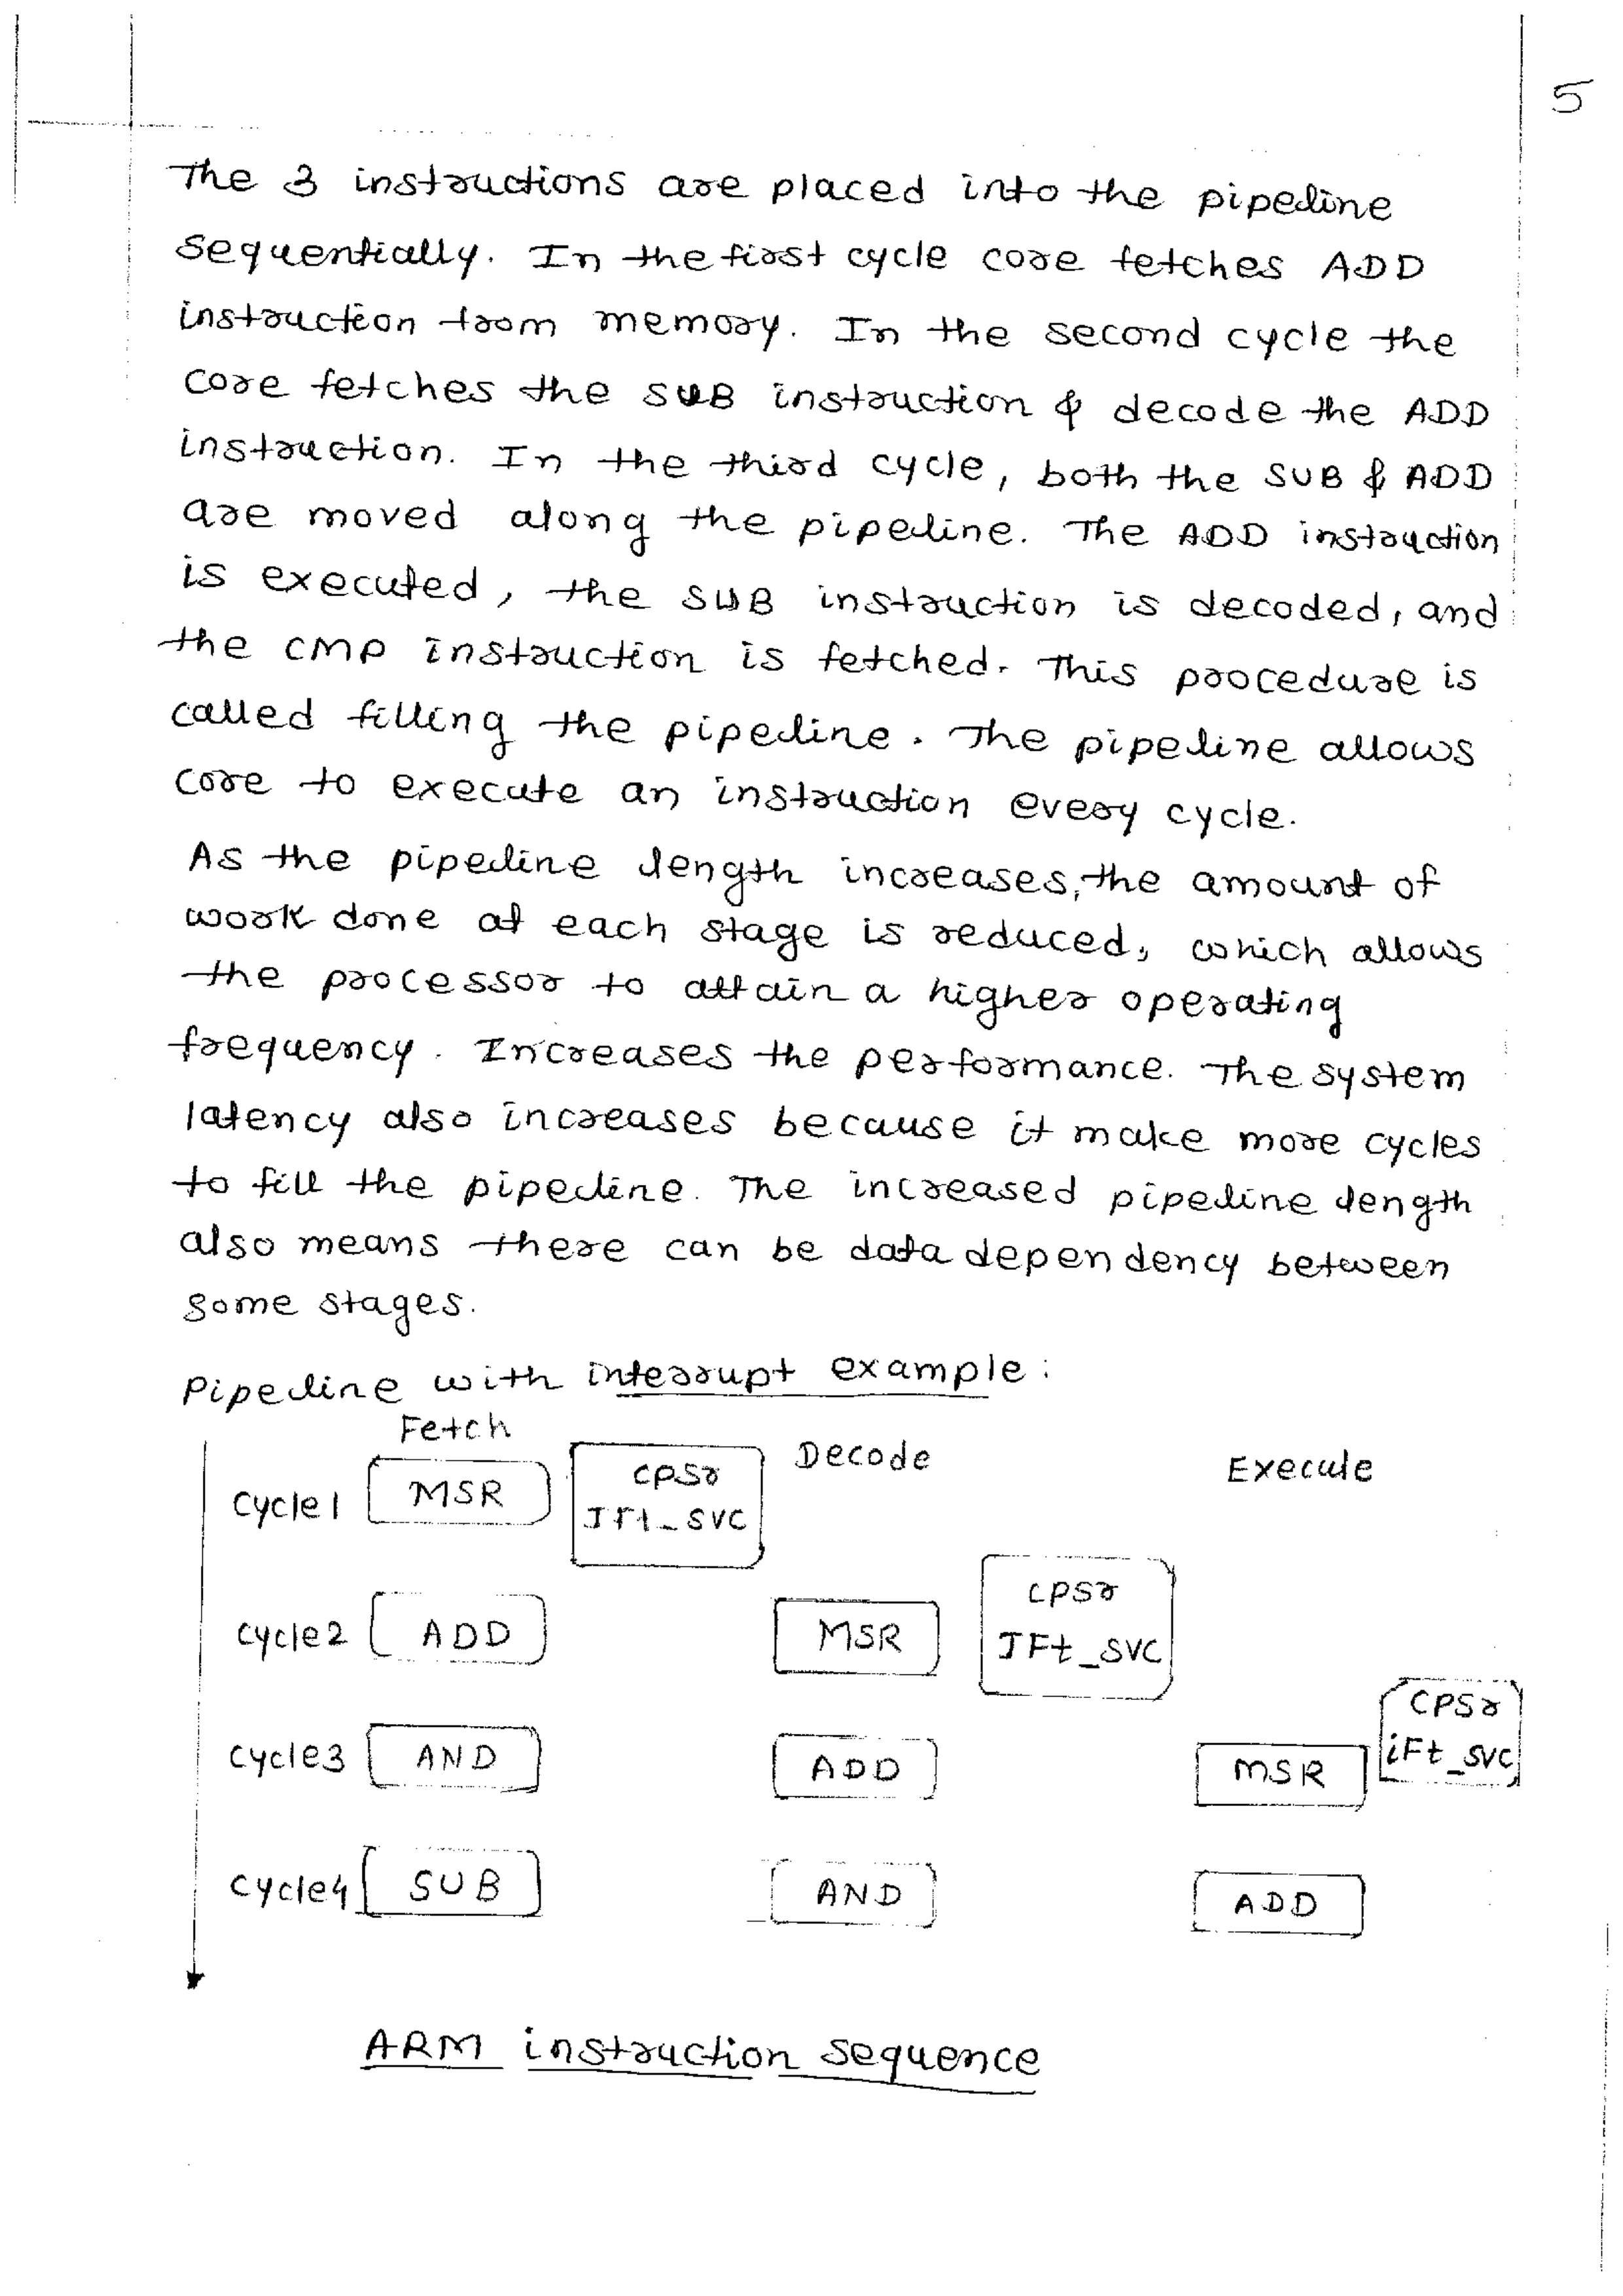 5
The 3 instructions are placed into the pipeline
sequentially. In the first cycle core fetches ADD
instruction from memory. In the second cycle the
core fetches the SUB instruction & decode the ADD
instruction. In the third cycle, both the SUB & ADD
are moved along the pipeline. The ADD instruction
is executed, the SUB instruction is decoded, and
the CMP instruction is fetched. This procedure is
called filling the pipeline. The pipeline allows
core to execute an instruction every cycle.
As the pipeline length increases, the amount of
work done at each stage is reduced, which allows
the processor to attain a higher operating
frequency. Increases the performance. The system
latency also increases because it make more cycles
to fill the pipeline. The increased pipeline length
also means there can be data dependency between
some stages.
Pipeline with interrupt example:
Fetch Decode Execute
Cycle1 MSR CPSr
IFt_SVC
Cycle2 ADD MSR CPSr
IFt_SVC
Cycle3 AND ADD MSR CPSr
iFt_SVC
Cycle4 SUB AND ADD
ARM instruction sequence